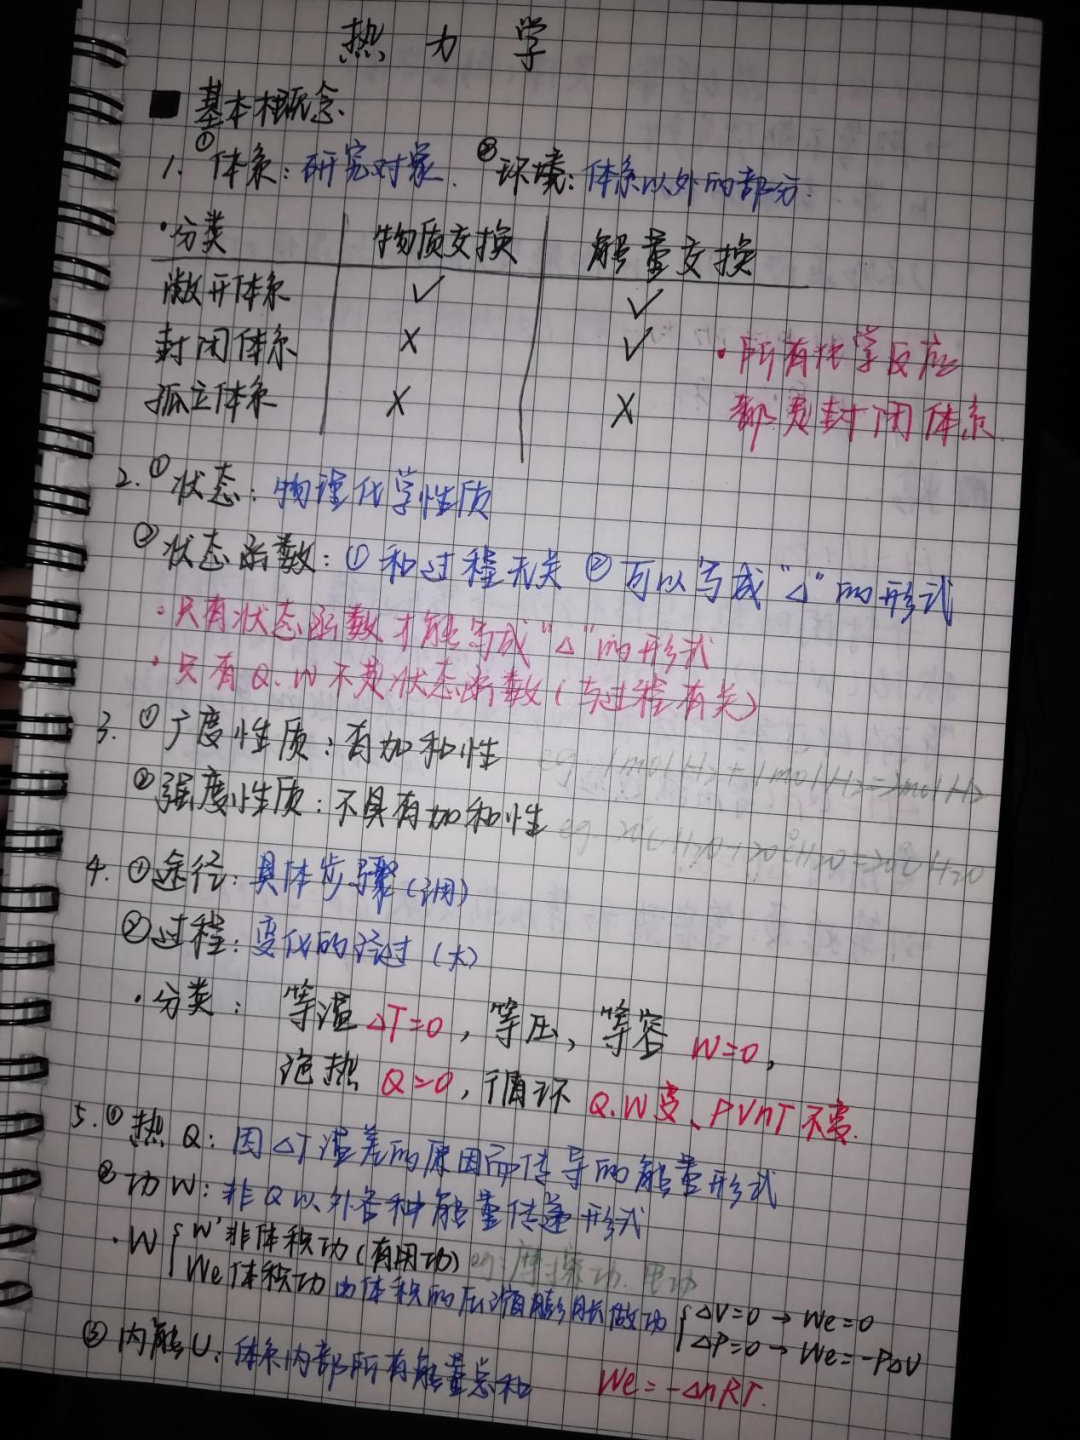 热 力 学
■ 基本概念.
1. ①体系: 研究对象. ②环境: 体系以外的部分.
·分类 物质交换 能量交换
敞开体系 ✓ ✓
封闭体系 × ✓ ·所有化学反应
孤立体系 × × 都是封闭体系.
2. ①状态: 物理化学性质
②状态函数: ①和过程无关 ②可以写成"△"的形式
·只有状态函数才能写成"△"的形式
·只有Q.W不是状态函数(与过程有关)
3. ①广度性质: 有加和性 eg. 1mol H2 + 1mol H2 = 2mol H2
②强度性质: 不具有加和性 eg. 20℃ H2O + 20℃ H2O = 20℃ H2O
4. ①途径: 具体步骤
②过程: 变化的经过 (大)
·分类: 等温 △T=0, 等压, 等容 W=0,
绝热 Q=0, 循环 Q.W变、PVnT不变.
5. ①热Q: 因△T温差的原因而传导的能量形式
②功W: 非Q以外各种能量传递形式
·W { W'非体积功(有用功) eg: 摩擦功. 电功
We体积功 由体积的压缩膨胀做功 { △V=0 → We=0
△P=0 → We=-P△V
③内能U: 体系内部所有能量总和 We=-△nRT.